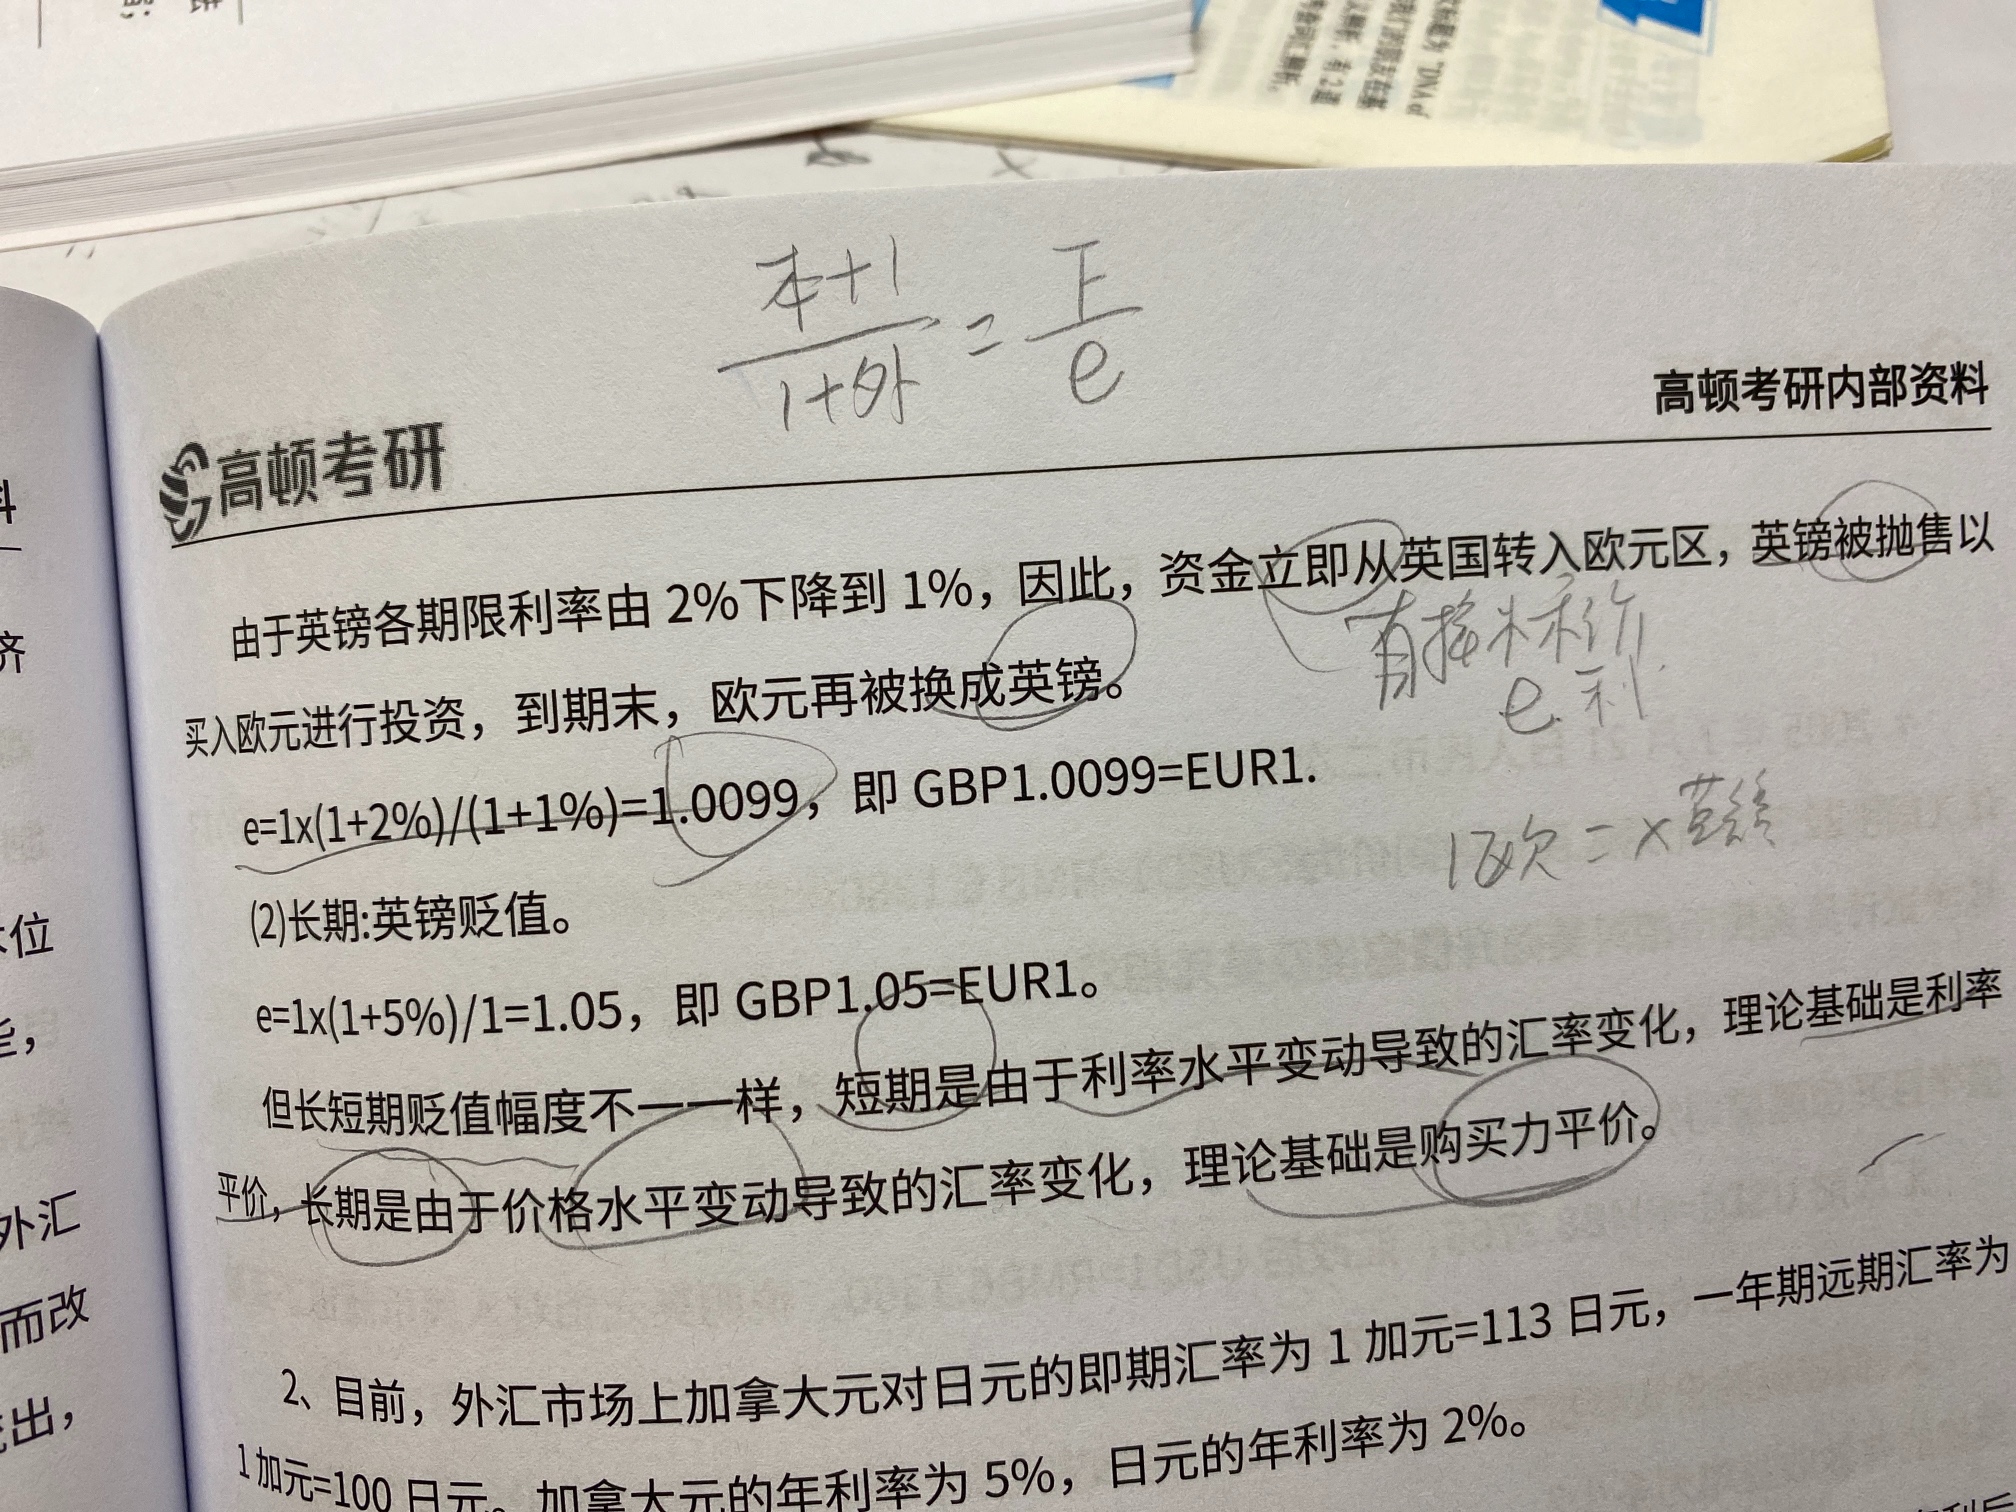 本+1 / 1+外 = F / e
高顿考研
高顿考研内部资料
由于英镑各期限利率由 2%下降到 1%，因此，资金立即从英国转入欧元区，英镑被抛售以
直接标价
买入欧元进行投资，到期末，欧元再被换成英镑。
e 利
e=1x(1+2%)/(1+1%)=1.0099，即 GBP1.0099=EUR1.
1欧=x英镑
(2)长期:英镑贬值。
e=1x(1+5%)/1=1.05，即 GBP1.05=EUR1。
但长短期贬值幅度不一一样，短期是由于利率水平变动导致的汇率变化，理论基础是利率
平价，长期是由于价格水平变动导致的汇率变化，理论基础是购买力平价。
2、目前，外汇市场上加拿大元对日元的即期汇率为 1 加元=113 日元，一年期远期汇率为
1 加元=100 日元。加拿大元的年利率为 5%，日元的年利率为 2%。
料
济
位
外汇
而改
出，